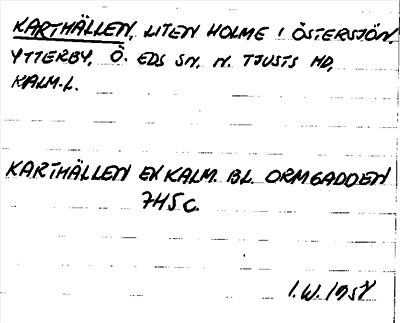 KARTHÄLLEN, LITEN HOLME I ÖSTERSJÖN.
YTTERBY, Ö. EDS SN, N. TJUSTS HD,
KALM.L.
KARTHÄLLEN EK KALM. BL. ORMGADDEN
745c.
I.W. 1954